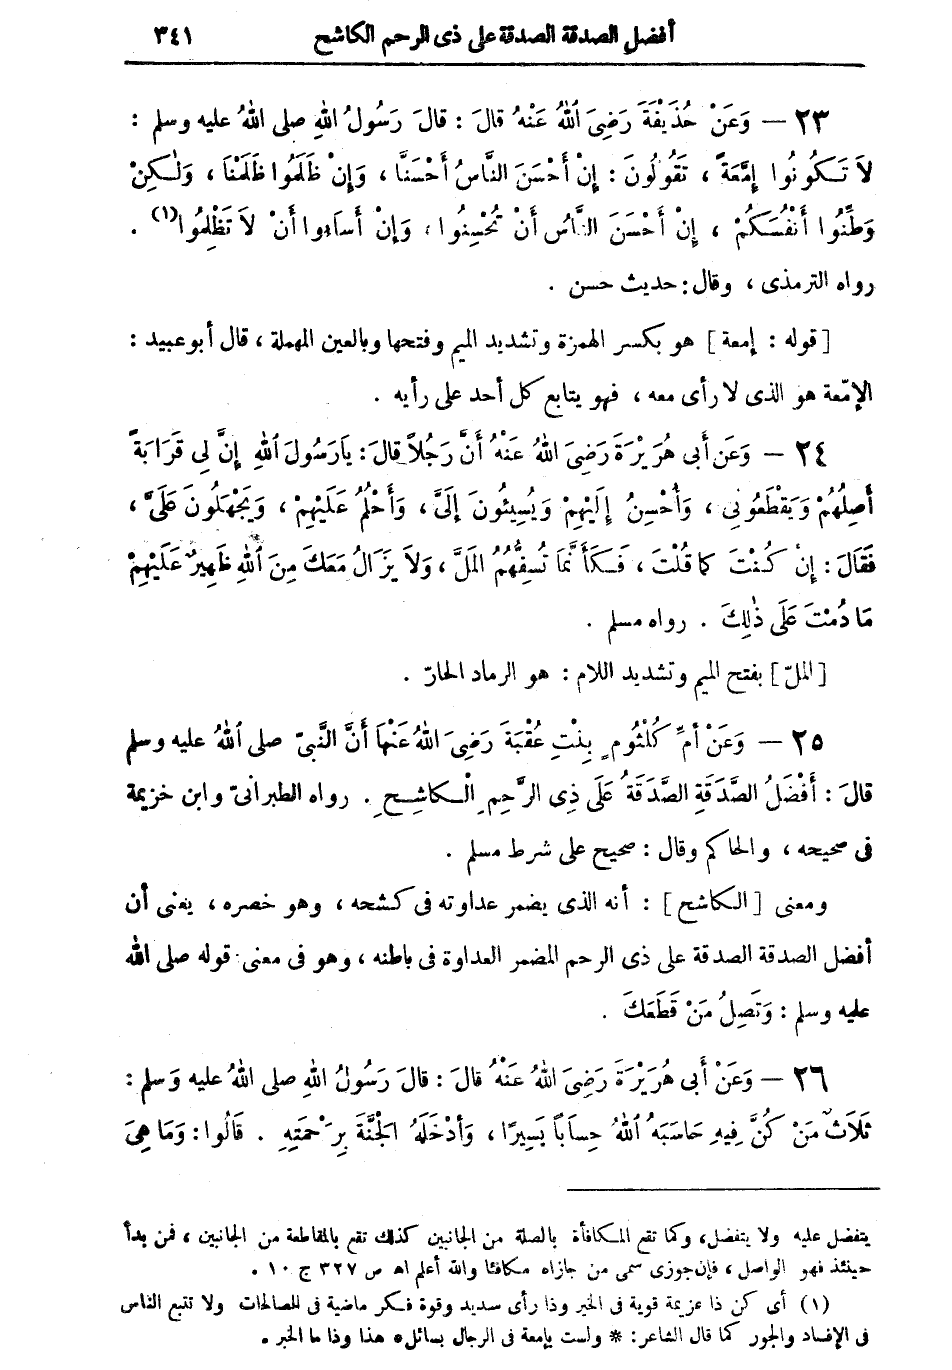 أفضل الصدقة الصدقة على ذى الرحم الكاشح ٣٤١
٢٣ — وَعَنْ حُذَيْفَةَ رَضِىَ ٱللهُ عَنْهُ قالَ : قالَ رَسُولُ اللهِ صلى اللهُ عليه وسلم :
لاَ تَكُونُوا إِمَّعَةً ، تَقُولُونَ : إِنْ أَحْسَنَ النَّاسُ أَحْسَنَّا ، وَإِنْ ظَلَمُوا ظَلَمْنَا ، وَلٰكِنْ
وَطِّنُوا أَنْفُسَكُمْ ، إِنْ أَحْسَنَ النَّاسُ أَنْ تُحْسِنُوا ، وَإِنْ أَسَاءوا أَنْ لاَ تَظْلِمُوا(١) .
رواه الترمذى ، وقال : حديث حسن .
[ قوله : إمعة ] هو بكسر الهمزة وتشديد الميم وفتحها وبالعين المهملة ، قال أبو عبيد :
الإمّعة هو الذى لا رأى معه ، فهو يتابع كل أحد على رأيه .
٢٤ — وَعَن أَبى هُرَيْرَةَ رَضِىَ اللهُ عَنْهُ أَنَّ رَجُلاً قالَ : يارَسُولَ ٱللهِ إِنَّ لِى قَرَابَةً
أَصِلُهُمْ وَيَقْطَعُونِى ، وَأُحْسِنُ إِلَيْهِمْ وَيُسِيئُونَ إِلَىَّ ، وَأَحْلُمُ عَلَيْهِمْ ، وَيَجْهَلُونَ عَلَىَّ ،
فَقَالَ : إِنْ كُنْتَ كما قُلْتَ ، فَكَأَنَّمَا تُسِفُّهُمُ المَلَّ ، وَلاَ يَزَالُ مَعَكَ مِنَ ٱللهِ ظَهِيرٌ عَلَيْهِمْ
مَا دُمْتَ عَلَى ذٰلِكَ . رواه مسلم .
[ الملّ ] بفتح الميم وتشديد اللام : هو الرماد الحارّ .
٢٥ — وَعَنْ أُمِّ كُلْثُومٍ بِنْتِ عُقْبَةَ رَضِىَ اللهُ عَنْهَا أَنَّ النَّبىّ صلى ٱللهُ عليه وسلم
قالَ : أَفْضَلُ الصَّدَقَةِ الصَّدَقَةُ عَلَى ذِى الرَّحِمِ الْكَاشِحِ . رواه الطبرانىّ وابن خزيمة
فى صحيحه ، والحاكم وقال : صحيح على شرط مسلم .
ومعنى [ الكاشح ] : أنه الذى يضمر عداوته فى كشحه ، وهو خصره ، يعنى أن
أفضل الصدقة الصدقة على ذى الرحم المضمر العداوة فى باطنه ، وهو فى معنى قوله صلى الله
عليه وسلم : وَتَصِلُ مَنْ قَطَعَكَ .
٢٦ — وَعَنْ أَبى هُرَيْرَةَ رَضِىَ اللهُ عَنْهُ قالَ : قالَ رَسُولُ اللهِ صلى اللهُ عليه وَسلم :
ثَلَاثٌ مَنْ كُنَّ فِيهِ حَاسَبَهُ ٱللهُ حِسَابًا يَسِيرًا ، وَأَدْخَلَهُ الْجَنَّةَ بِرَحْمَتِهِ . قَالُوا : وَمَا هِىَ
يتفضل عليه ولا يتفضل ، وكما تقع المكافأة بالصلة من الجانبين كذلك تقع بالمقاطعة من الجانبين ، فمن بدأ
حينئذ فهو الواصل ، فإن جوزى سمى من جازاه مكافئا والله أعلم اه ص ٣٢٧ ج ١٠ .
(١) أى كن ذا عزيمة قوية فى الخير وذا رأى سديد وقوة فكر ماضية فى الصالحات ولا تتبع الناس
فى الإفساد والجور كما قال الشاعر : * ولست بإمعة فى الرجال بسائل * هذا وذا ما الخبر .